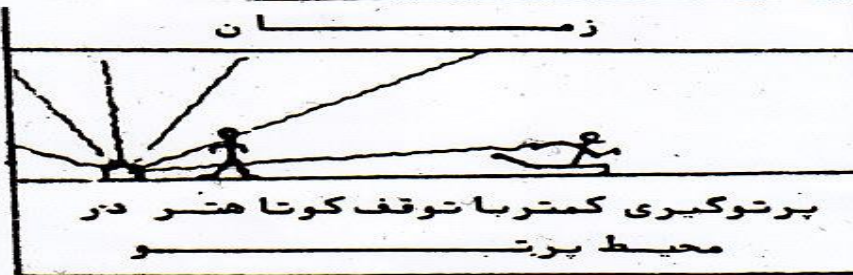 زمان
پرتوگیری کمتر با توقف کوتاهتر در
محیط پرتو